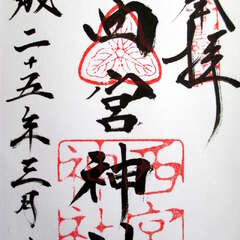 奉拝
西宮神社
成二十五年三月
西宮
神社